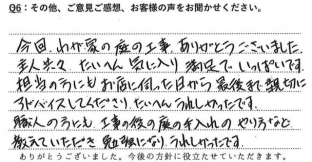 Q6：その他、ご意見ご感想、お客様の声をお聞かせください。
今回、わが家の庭の工事、ありがとうございました。
主人共々、たいへん気に入り満足でいっぱいです。
担当の方にもお店に伺った日から最後まで親切に
アドバイスしてくださり、たいへんうれしかったです。
職人の方にも工事の後の庭の手入れのやり方など
教えていただき勉強になりうれしかったです。
ありがとうございました。今後の方針に役立たせていただきます。